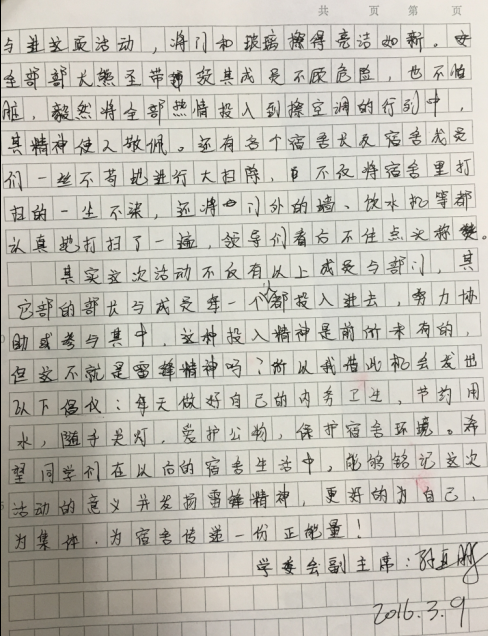 共 页 第 页
与进这项活动，将门和玻璃擦得亮洁如新。安
全部部长熊圣带领其成员不顾危险，也不怕
脏，毅然将全部热情投入到擦空调的行列中，
其精神使人敬佩。还有各个宿舍长及宿舍成员
们一丝不苟地进行大扫除，不仅将宿舍里打
扫的一尘不染，还将门外的墙、饮水机等都
认真地打扫了一遍，领导们看后不住点头称赞。
其实这次活动不仅有以上成员与部门，其
它部的部长与成员每一个人都投入进去，努力协
助或参与其中，这种投入精神是前所未有的，
但这不就是雷锋精神吗？所以我借此机会发出
以下倡议：每天做好自己的内务卫生，节约用
水，随手关灯，爱护公物，保护宿舍环境。希
望同学们在以后的宿舍生活中，能够铭记这次
活动的意义并发扬雷锋精神，更好的为自己、
为集体、为宿舍传递一份正能量！
学委会副主席：
2016.3.9